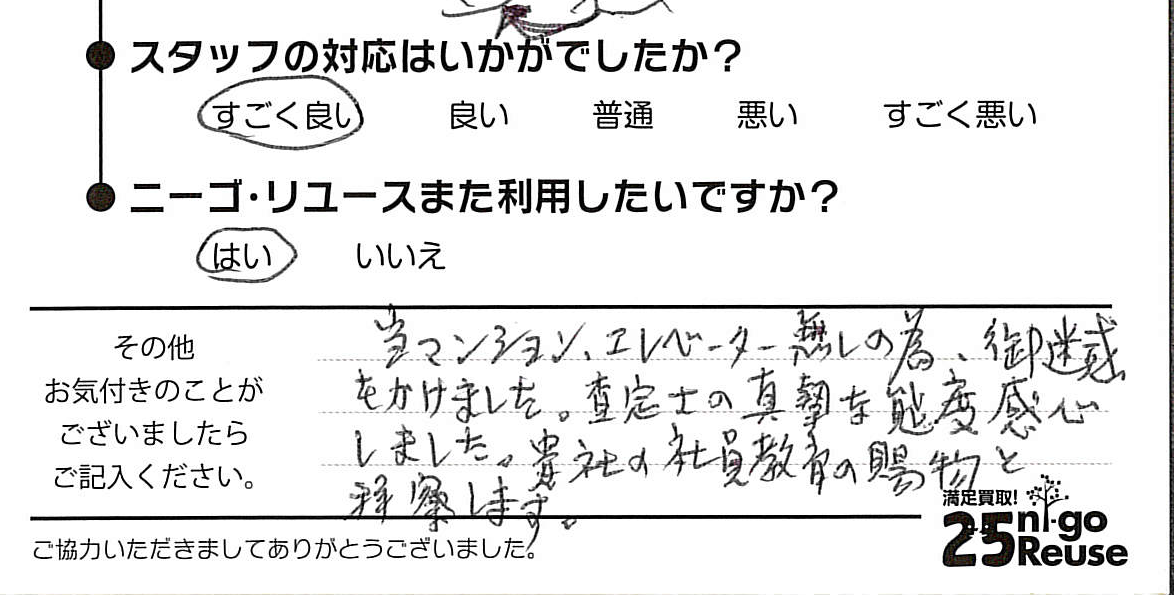 スタッフの対応はいかがでしたか?
すごく良い 良い 普通 悪い すごく悪い
ニーゴ・リユースまた利用したいですか?
はい いいえ
その他
お気付きのことが
ございましたら
ご記入ください。
当マンション、エレベーター無しの為、御迷惑
をかけました。査定士の真摯な態度感心
しました。貴社の社員教育の賜物と
拝察します。
満足買取!
25 ni-go
Reuse
ご協力いただきましてありがとうございました。